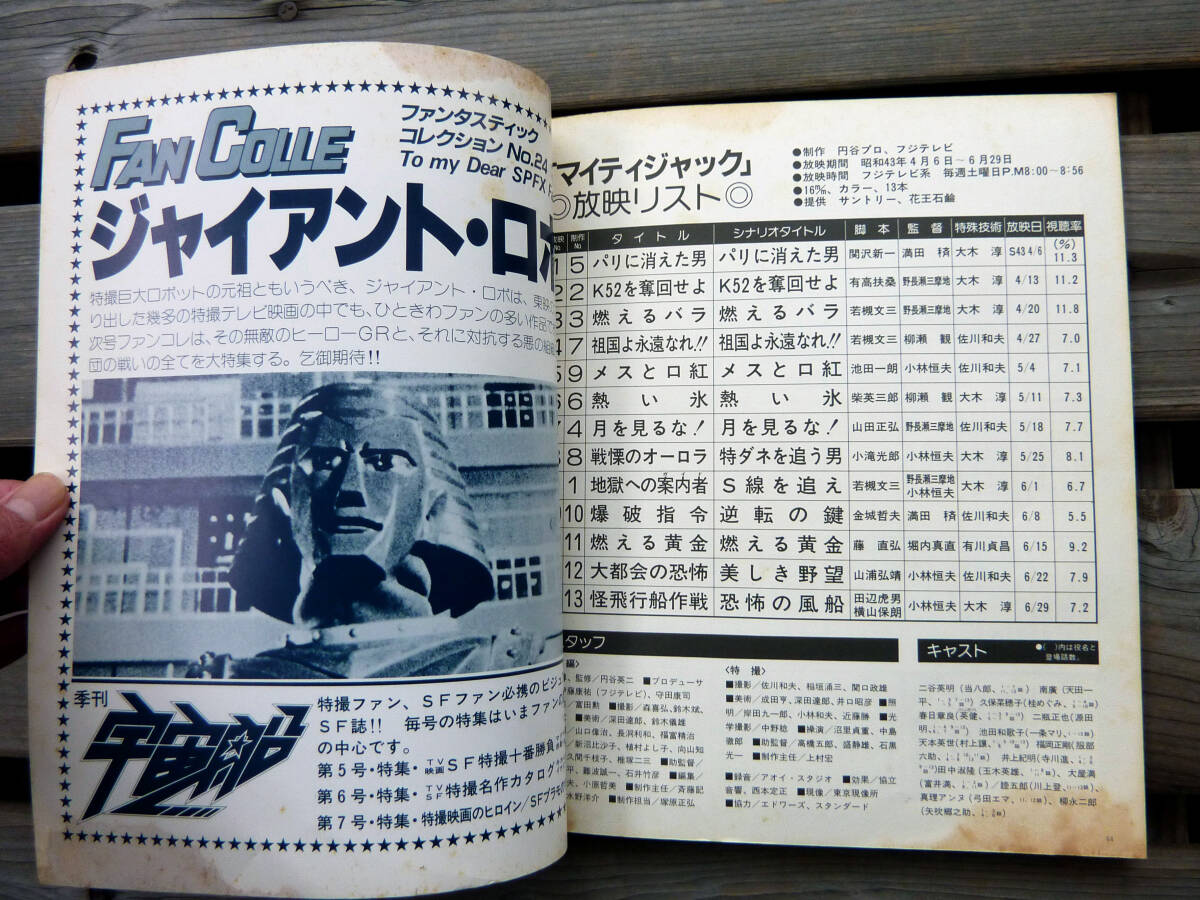 FAN COLLE
ファンタスティック
コレクション No.24
To my Dear SPFX
ジャイアント・ロボ
特撮巨大ロボットの元祖ともいうべき、ジャイアント・ロボは、東映
り出した幾多の特撮テレビ映画の中でも、ひときわファンの多い作品
次号ファンコレは、その無敵のヒーローGRと、それに対抗する悪の
団の戦いの全てを大特集する。乞御期待!!
季刊
宇宙船
特撮ファン、SFファン必携のビジュ
SF誌!! 毎号の特集はいまファン
の中心です。
第5号・特集・TV映画SF特撮十番勝負
第6号・特集・TVSF特撮名作カタログ
第7号・特集・特撮映画のヒロイン/SFプラモ
「マイティジャック」
◎放映リスト◎
●制作 円谷プロ、フジテレビ
●放映期間 昭和43年4月6日〜6月29日
●放映時間 フジテレビ系 毎週土曜日P.M8:00〜8:56
●16%、カラー、13本
●提供 サントリー、花王石鹸
放映No 制作No タイトル シナリオタイトル 脚本 監督 特殊技術 放映日 視聴率
1 5 パリに消えた男 パリに消えた男 関沢新一 満田 𥝱 大木 淳 S43 4/6 (%) 11.3
2 2 K52を奪回せよ K52を奪回せよ 有高扶桑 野長瀬三摩地 大木 淳 4/13 11.2
3 3 燃えるバラ 燃えるバラ 若槻文三 野長瀬三摩地 大木 淳 4/20 11.8
4 7 祖国よ永遠なれ!! 祖国よ永遠なれ!! 若槻文三 柳瀬 観 佐川和夫 4/27 7.0
5 9 メスと口紅 メスと口紅 池田一朗 小林恒夫 佐川和夫 5/4 7.1
6 6 熱い氷 熱い氷 柴英三郎 柳瀬 観 大木 淳 5/11 7.3
4 月を見るな! 月を見るな! 山田正弘 野長瀬三摩地 佐川和夫 5/18 7.7
8 戦慄のオーロラ 特ダネを追う男 小滝光郎 小林恒夫 大木 淳 5/25 8.1
1 地獄への案内者 S線を追え 若槻文三 野長瀬三摩地 小林恒夫 大木 淳 6/1 6.7
10 爆破指令 逆転の鍵 金城哲夫 満田 𥝱 佐川和夫 6/8 5.5
11 燃える黄金 燃える黄金 藤 直弘 堀内真直 有川貞昌 6/15 9.2
12 大都会の恐怖 美しき野望 山浦弘靖 小林恒夫 佐川和夫 6/22 7.9
13 怪飛行船作戦 恐怖の風船 田辺虎男 横山保朗 小林恒夫 大木 淳 6/29 7.2
タッフ
編〉
監修/円谷英二 ■プロデューサ
藤康祐(フジテレビ)、守田康司
/富田勲 ■撮影/森喜弘、鈴木斌、
■美術/深田達郎、鈴木儀雄
/山口偉治、長沢利和、福富精治
/新沼比沙子、植村よし子、向山知
久間千枝子、椎塚二三 ■助監督/
平、難波誠一、石井竹彦 ■編集/
夫、小原哲美 ■制作主任/斉藤記
水野洋介 ■制作担当/塚原正弘
〈特撮〉
■撮影/佐川和夫、稲垣涌三、関口政雄
■美術/成田亨、深田達郎、井口昭彦 ■照
明/岸田九一郎、小林和夫、近藤勝 ■光
学撮影/中野稔 ■操演/沼里貞重、中島
徹郎 ■助監督/高橋五郎、盛静雄、石黒
光一 ■制作主任/上村宏
■録音/アオイ・スタジオ ■効果/協立
音響、西本定正 ■現像/東京現像所
■協力/エドワーズ、スタンダード
キャスト
●( )内は役名と
登場話数。
二谷英明(当八郎、) 南廣(天田一
平、) 久保菜穂子(桂めぐみ、)
春日章良(英健、) 二瓶正也(源田
明、) 池田和歌子(一条マリ、)
天本英世(村上譲、) 福岡正剛(服部
六助、) 井上紀明(寺川進、
)田中淑隆(玉木英雄、) 大屋満
(富井満、)睦五郎(川上登、11〜13話)、
真理アンヌ(弓田エマ、) 柳永二郎
(矢吹郷之助、)
64